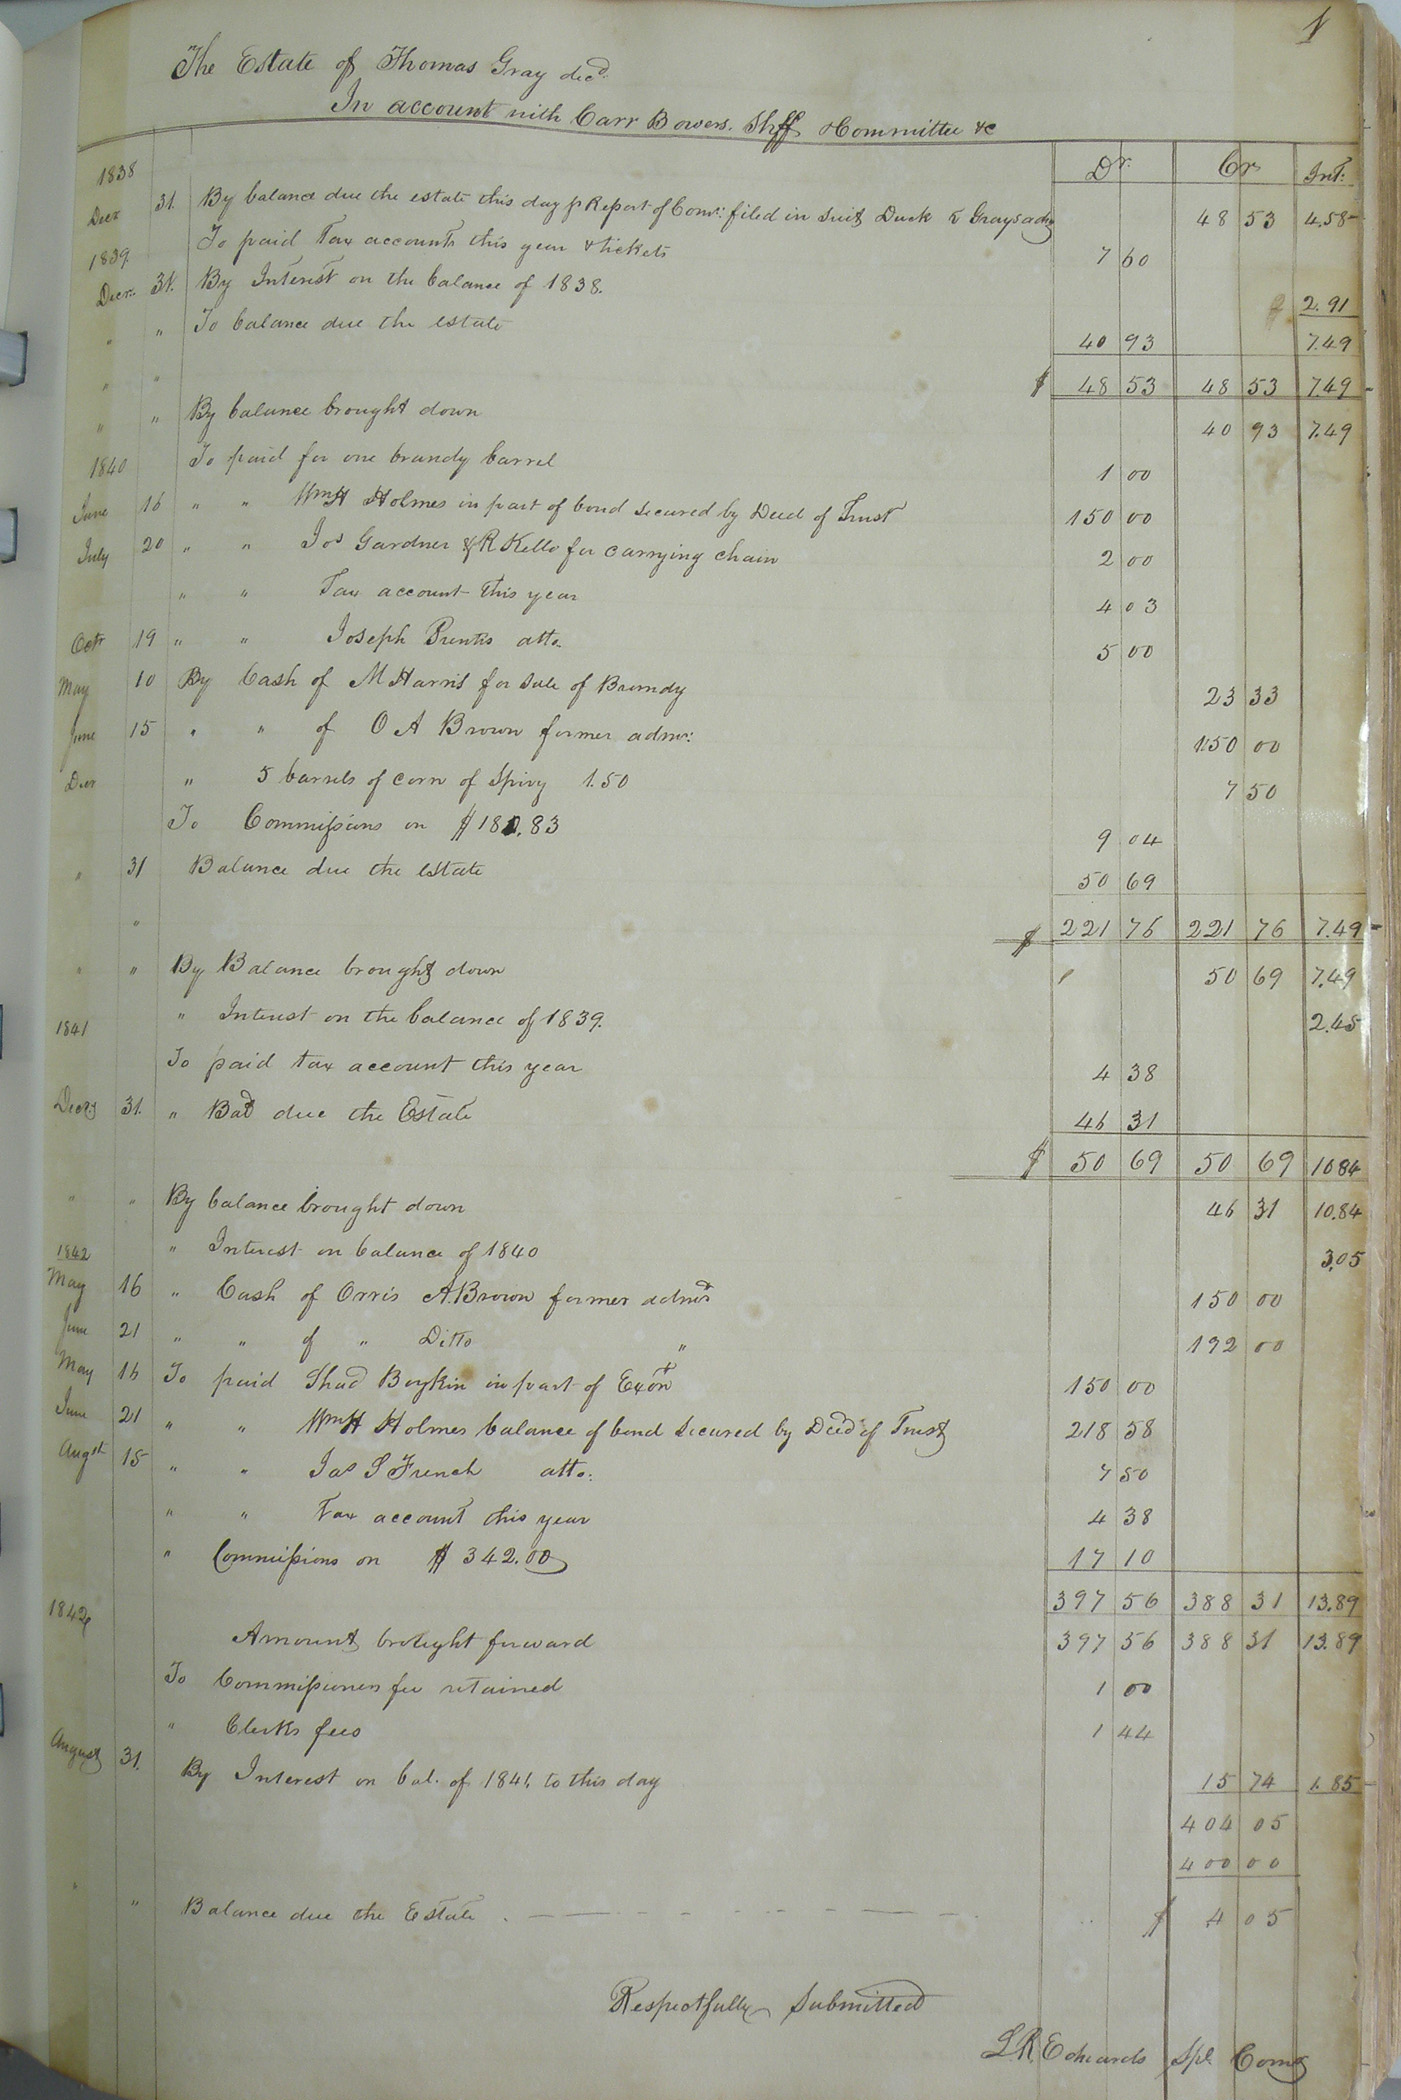 1
The Estate of Thomas Gray decd.
In account with Carr Bowers. Shff Committee &c
Dr. Cr. Int:
1838
Decr 31. By balance due the estate this day pr Report of Comr: filed in suit Duck v Grays adm 48 53 4.58
1839. To paid Tax accounts this year & tickets 7 60
Decr. 31. By Interest on the balance of 1838. 2.91
" " To balance due the estate 40 93 7.49
" " $ 48 53 48 53 7.49
" " By balance brought down 40 93 7.49
1840 To paid for one brandy barrel 1 00
June 16 " " Wm H Holmes in part of bond secured by Deed of Trust 150 00
July 20 " " Jos Gardner & R Kello for carrying chain 2 00
" " Tax account this year 4 03
Octr 19 " " Joseph Prentis atto. 5 00
May 10 By Cash of M Harris for sale of Brandy 23 33
June 15 " " of O A Brown former admr: 150 00
Decr " 5 barrels of corn of Spivy 1.50 7 50
To Commissions on $180.83 9 04
" 31 Balance due the estate 50 69
" $ 221 76 221 76 7.49
" " By Balance brought down 50 69 7.49
1841 " Interest on the balance of 1839. 2.45
To paid tax account this year 4 38
Decr 31. " Bal due the Estate 46 31
$ 50 69 50 69 10 84
" " By balance brought down 46 31 10.84
1842 " Interest on balance of 1840 3.05
May 16 " Cash of Orris A. Brown former admr 150 00
June 21 " " of " Ditto " 192 00
May 16 To paid Shad Boykin in part of Exon 150 00
June 21 " " Wm H Holmes balance of bond secured by Deed of Trust 218 58
Augst 15 " " Jas S French atto: 7 50
" " Tax account this year 4 38
" Commissions on $ 342.00 17 10
397 56 388 31 13.89
1842
Amount brought forward 397 56 388 31 13.89
To Commissioners fee retained 1 00
" Clerks fees 1 44
August 31. By Interest on bal. of 1841 to this day 15 74 1.85
404 05
400 00
" " Balance due the Estate . $ 4 05
Respectfully Submitted
L. R. Edwards Spl. Comr